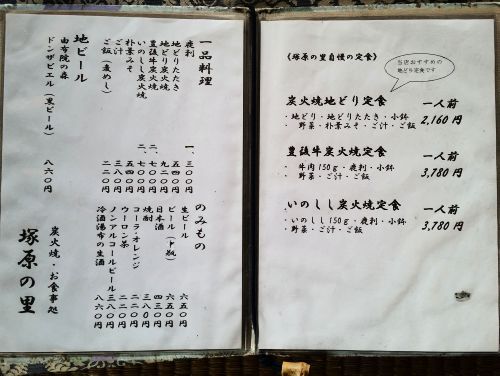 一品料理
鹿刺 一、三〇〇円
地どりたたき 五四〇円
地どり炭火焼 九二〇円
豊後牛炭火焼 二、七〇〇円
いのしし炭火焼 二、七〇〇円
朴葉みそ 五四〇円
ご汁 三八〇円
ご飯(麦めし) 二二〇円
地ビール
由布院の森
ドンザビエル(黒ビール) 八六〇円
のみもの
生ビール 六五〇円
ビール(中瓶) 六五〇円
日本酒 四三〇円
焼酎 三八〇円
コーラ・オレンジ 二二〇円
ウーロン茶 二二〇円
ノンアルコールビール 三八〇円
冷酒湯布の生酒 八六〇円
炭火焼・お食事処
塚原の里
《塚原の里自慢の定食》
当店おすすめの
地どり定食です
炭火焼地どり定食 一人前
・地どり・地どりたたき・小鉢
・野菜・朴葉みそ・ご汁・ご飯 2,160円
豊後牛炭火焼定食 一人前
・牛肉150g・鹿刺・小鉢
・野菜・ご汁・ご飯 3,780円
いのしし炭火焼定食 一人前
・いのしし150g・鹿刺・小鉢
・野菜・ご汁・ご飯 3,780円